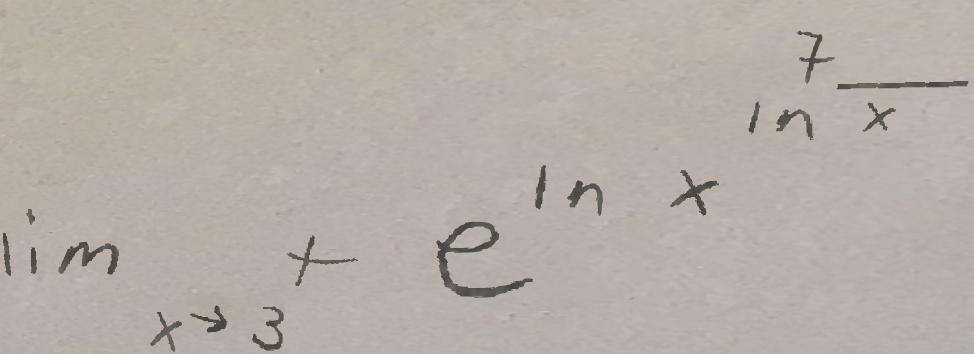 lim_{x → 3^+} e^{ln x^{\frac{7}{ln x}}}